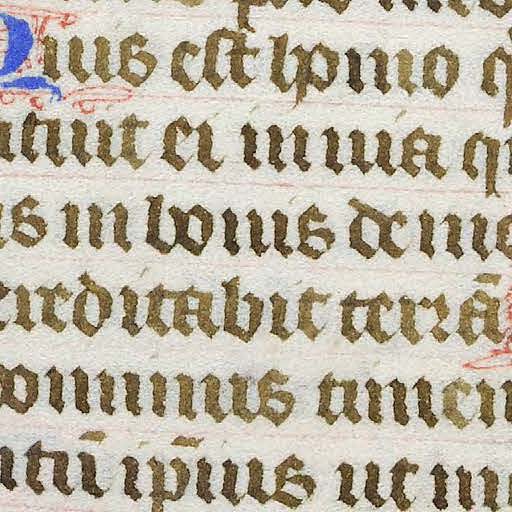 Quis est homo q
atuit ei in uia qu
us in bonis demo
ereditabit terrā
ominus timen
ntū ip̄ius ut m